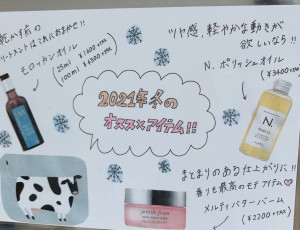 乾かす前の
トリートメントはこれにおまかせ!!
モロッカンオイル
(25ml ¥1300+TAX
100ml ¥4300+TAX)
ツヤ感、軽やかな動きが
欲しいなら!!
N. ポリッシュオイル
(¥3400+TAX)
2021年冬の
オススメアイテム!!
まとまりのある仕上がりに!!
香りも最高のモテアイテム♡
メルティバターバーム
(¥2200+TAX)
N.